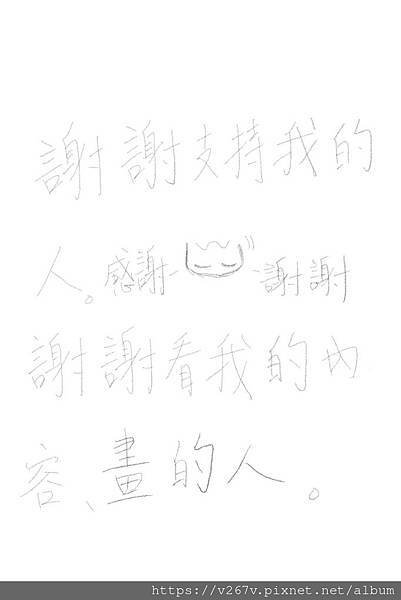 謝謝支持我的
人。感謝 謝謝
謝謝看我的內
容、畫的人。
https://v267v.pixnet.net/album